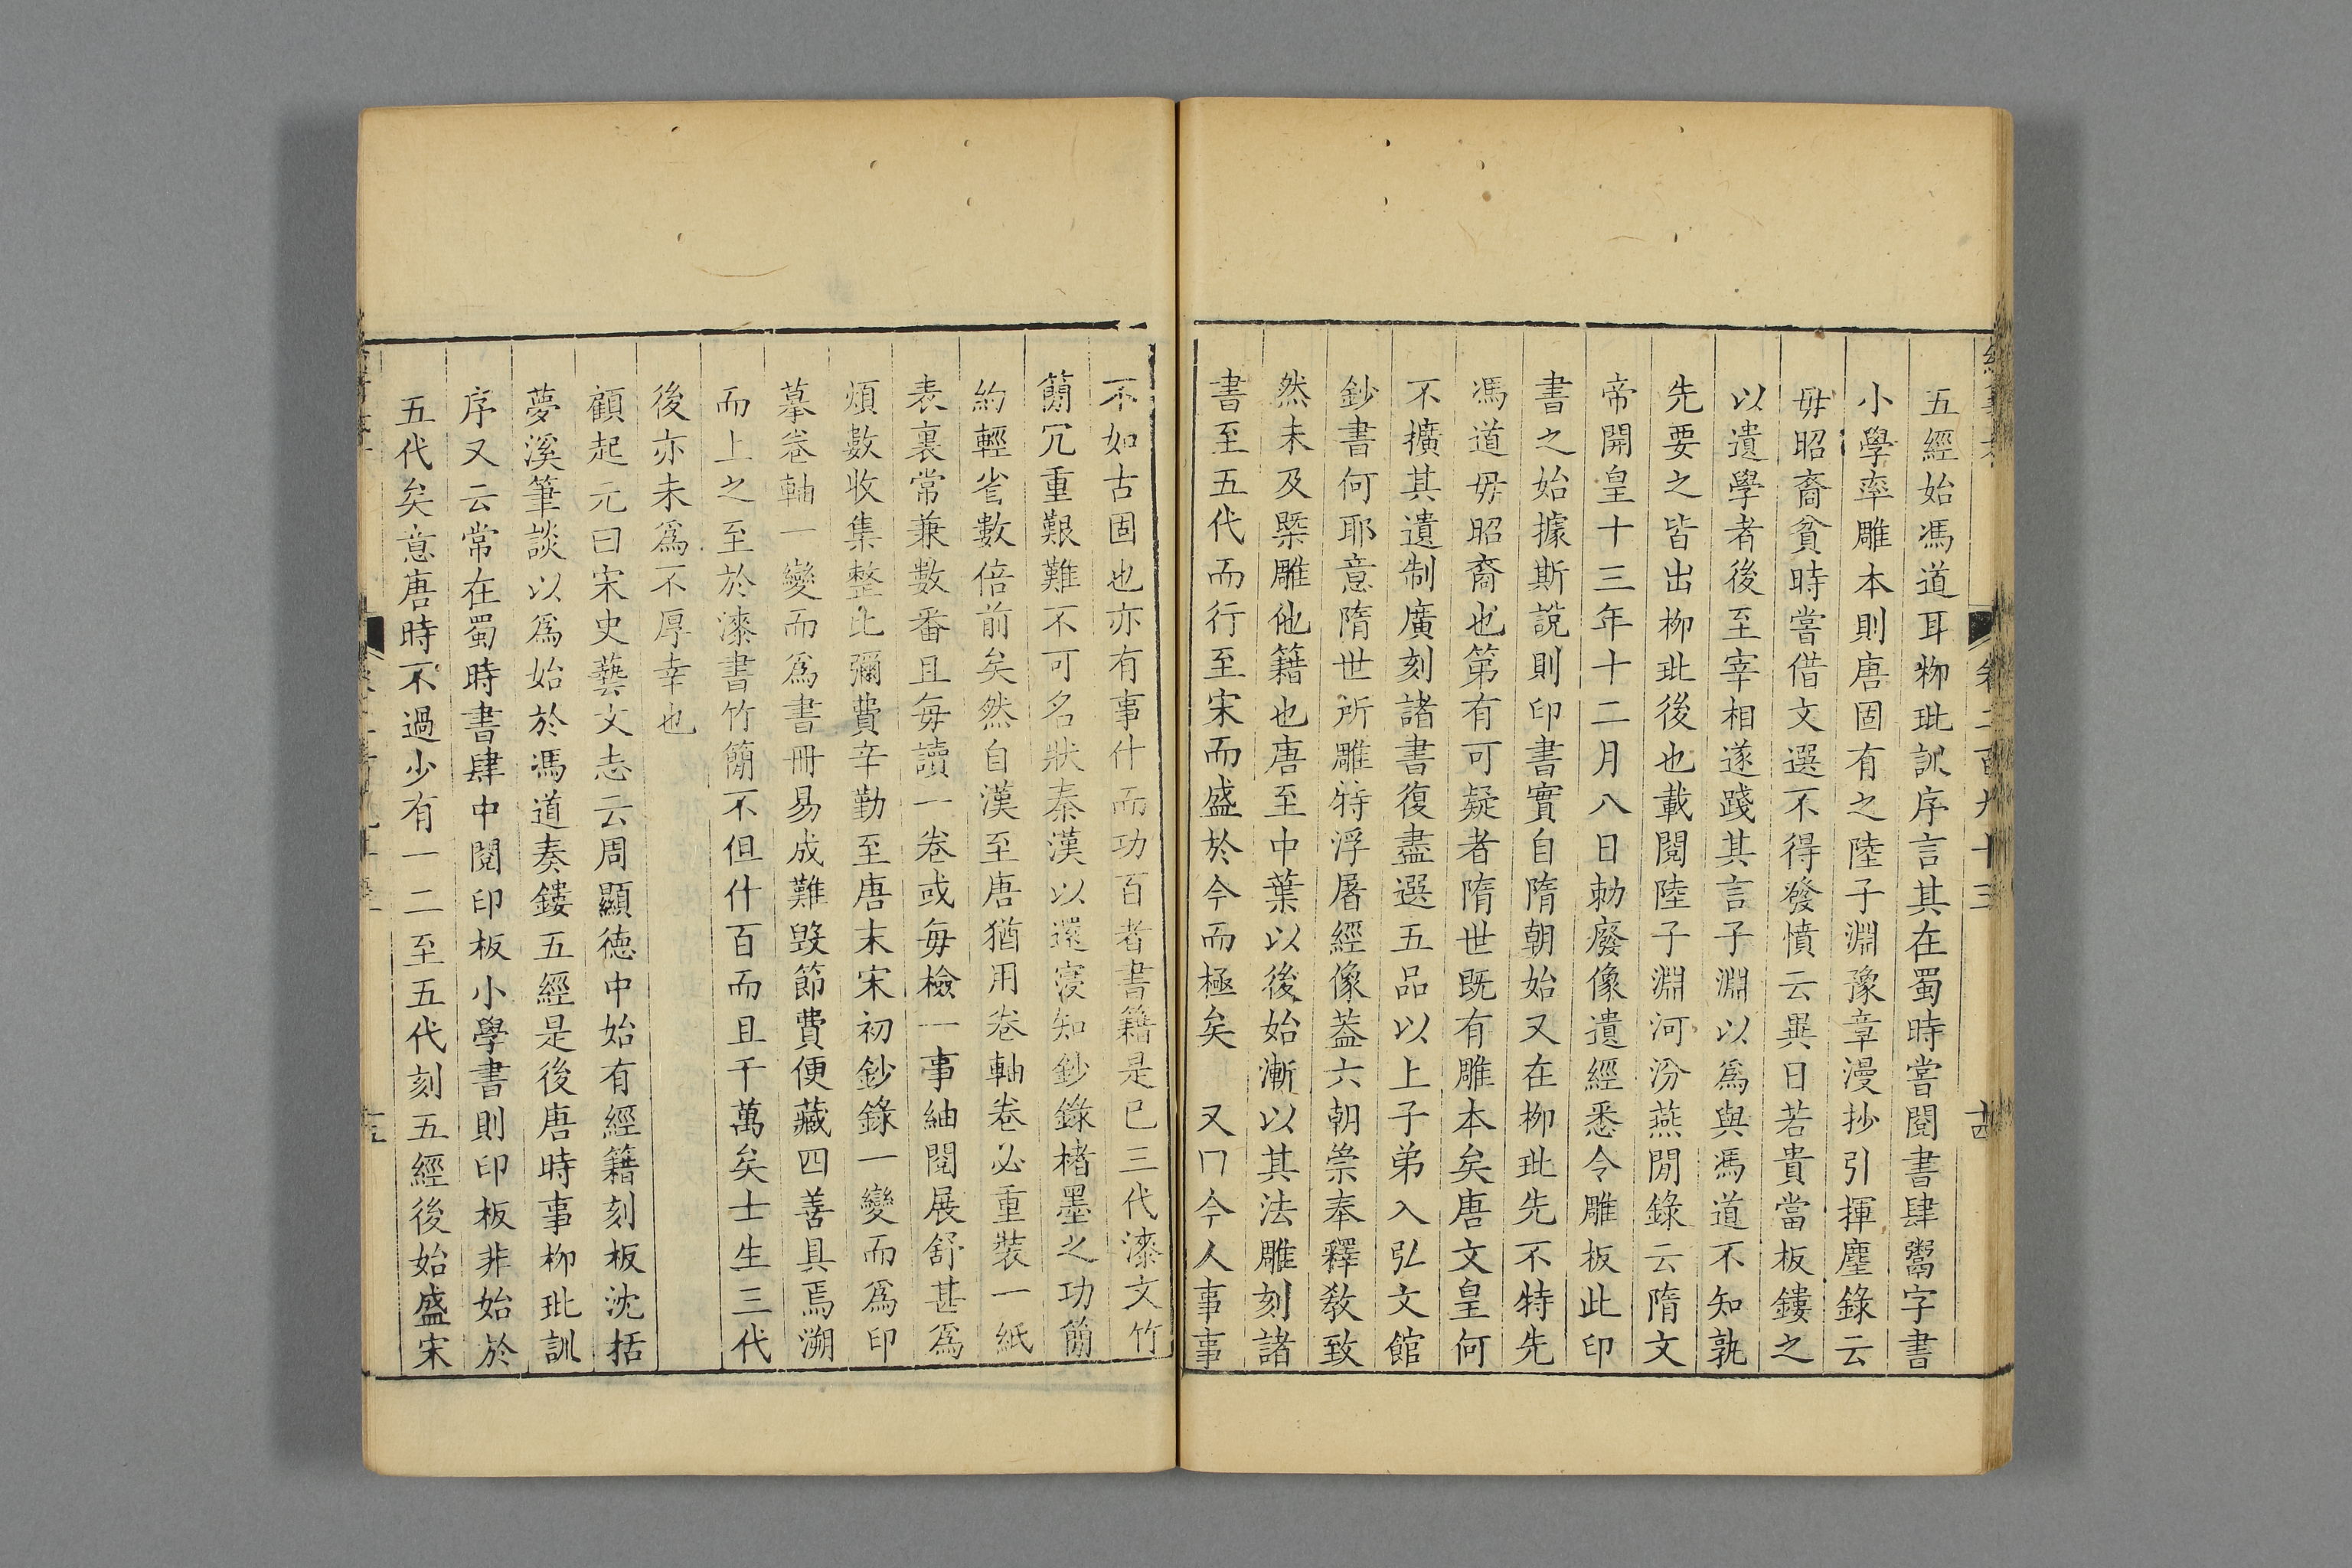 五經始馮道耳栁玭訓序言其在蜀時嘗閱書肆鬻字書
小學率雕本則唐固有之陸子淵豫章漫抄引揮麈錄云
毋昭裔貧時嘗借文選不得發憤云異日若貴當板鏤之
以遺學者後至宰相遂踐其言子淵以爲與馮道不知孰
先要之皆出栁玭後也載閱陸子淵河汾燕閒錄云隋文
帝開皇十三年十二月八日勑廢像遺經悉令雕板此印
書之始據斯說則印書實自隋朝始又在栁玭先不特先
馮道毋昭裔也第有可疑者隋世既有雕本矣唐文皇何
不擴其遺制廣刻諸書復盡選五品以上子弟入弘文館
鈔書何耶意隋世所雕特浮屠經像葢六朝崇奉釋敎致
然未及槩雕他籍也唐至中葉以後始漸以其法雕刻諸
書至五代而行至宋而盛於今而極矣　又曰今人事事
不如古固也亦有事什而功百者書籍是已三代漆文竹
簡冗重艱難不可名狀秦漢以還寖知鈔錄楮墨之功簡
約輕省數倍前矣然自漢至唐猶用卷軸卷必重裝一紙
表裏常兼數番且每讀一卷或每檢一事紬閱展舒甚爲
煩數收集整比彌費辛勤至唐末宋初鈔錄一變而爲印
摹卷軸一變而爲書冊易成難毀節費便藏四善具焉溯
而上之至於漆書竹簡不但什百而且千萬矣士生三代
後亦未爲不厚幸也
顧起元曰宋史藝文志云周顯德中始有經籍刻板沈括
夢溪筆談以爲始於馮道奏鏤五經是後唐時事栁玭訓
序又云常在蜀時書肆中閱印板小學書則印板非始於
五代矣意唐時不過少有一二至五代刻五經後始盛宋